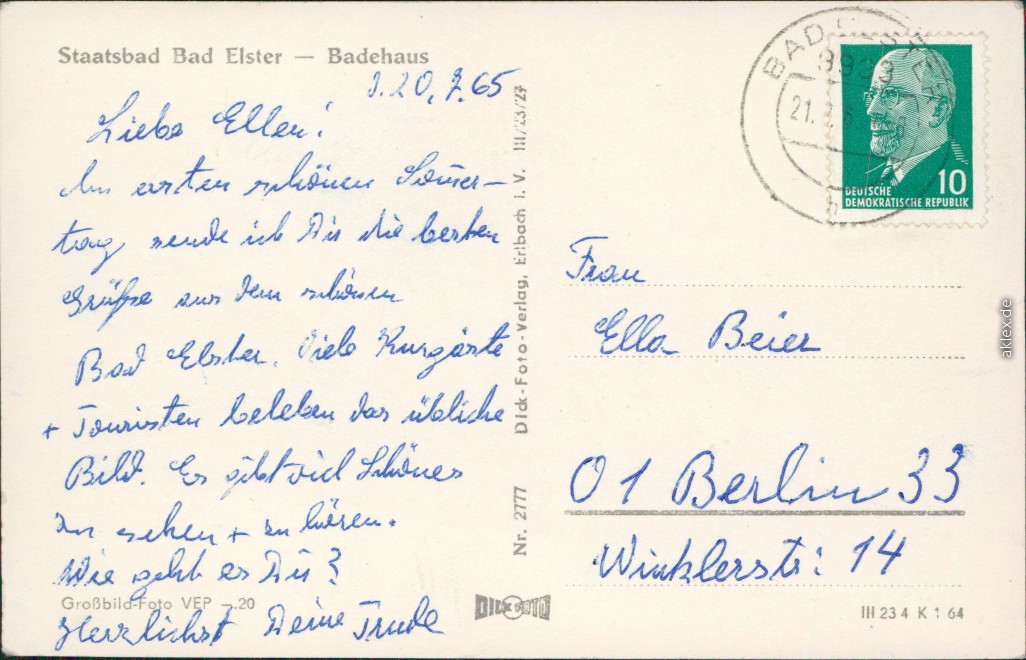 Staatsbad Bad Elster — Badehaus
20.7.65
Liebe Ellen!
Am ersten schönen Somer-
tag sende ich Dir die besten
Grüße aus dem schönen
Bad Elster. Viele Kurgäste
+ Touristen beleben das übliche
Bild. Es gibt viel Schönes
zu sehen + zu hören.
Wie geht es Dir?
Großbild-Foto VEP -.20
Herzlichst Deine Trude
Nr. 2777 Dick-Foto-Verlag, Erlbach i. V. III/23/27
DICK FOTO
BAD ELSTER
9933
21. 7. 6
h
DEUTSCHE
DEMOKRATISCHE REPUBLIK
10
Frau
Ella Beier
01 Berlin 33
Winklerstr: 14
III 23 4 K 1 64
aklex.de